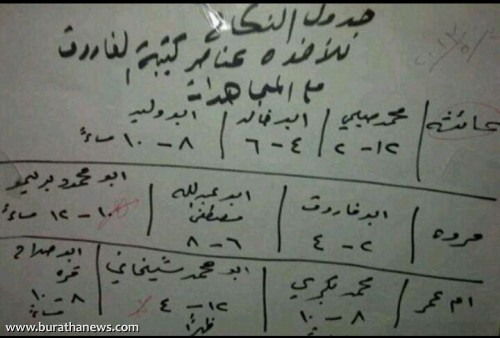 جدول النكاح
للأخوة عناصر كتيبة الفاروق
مع المجاهدات
عائشة
محمد صبلي
١٢ – ٢
ابو خالد
٤ – ٦
ابو وليد
٨ – ١٠ مساءً
مروه
ابو فاروق
٢ – ٤
ابو عبدالله
مصطفى
٦ – ٨
ابو محمود بريمو
١٠ – ١٢ مساءً
ام عمر
محمد بكري
٨ – ١٠
ابو محمد شيخاني
١٢ – ٤
ظهراً
ابو صلاح
٨ – ١٠
مساءً
www.burathanews.com